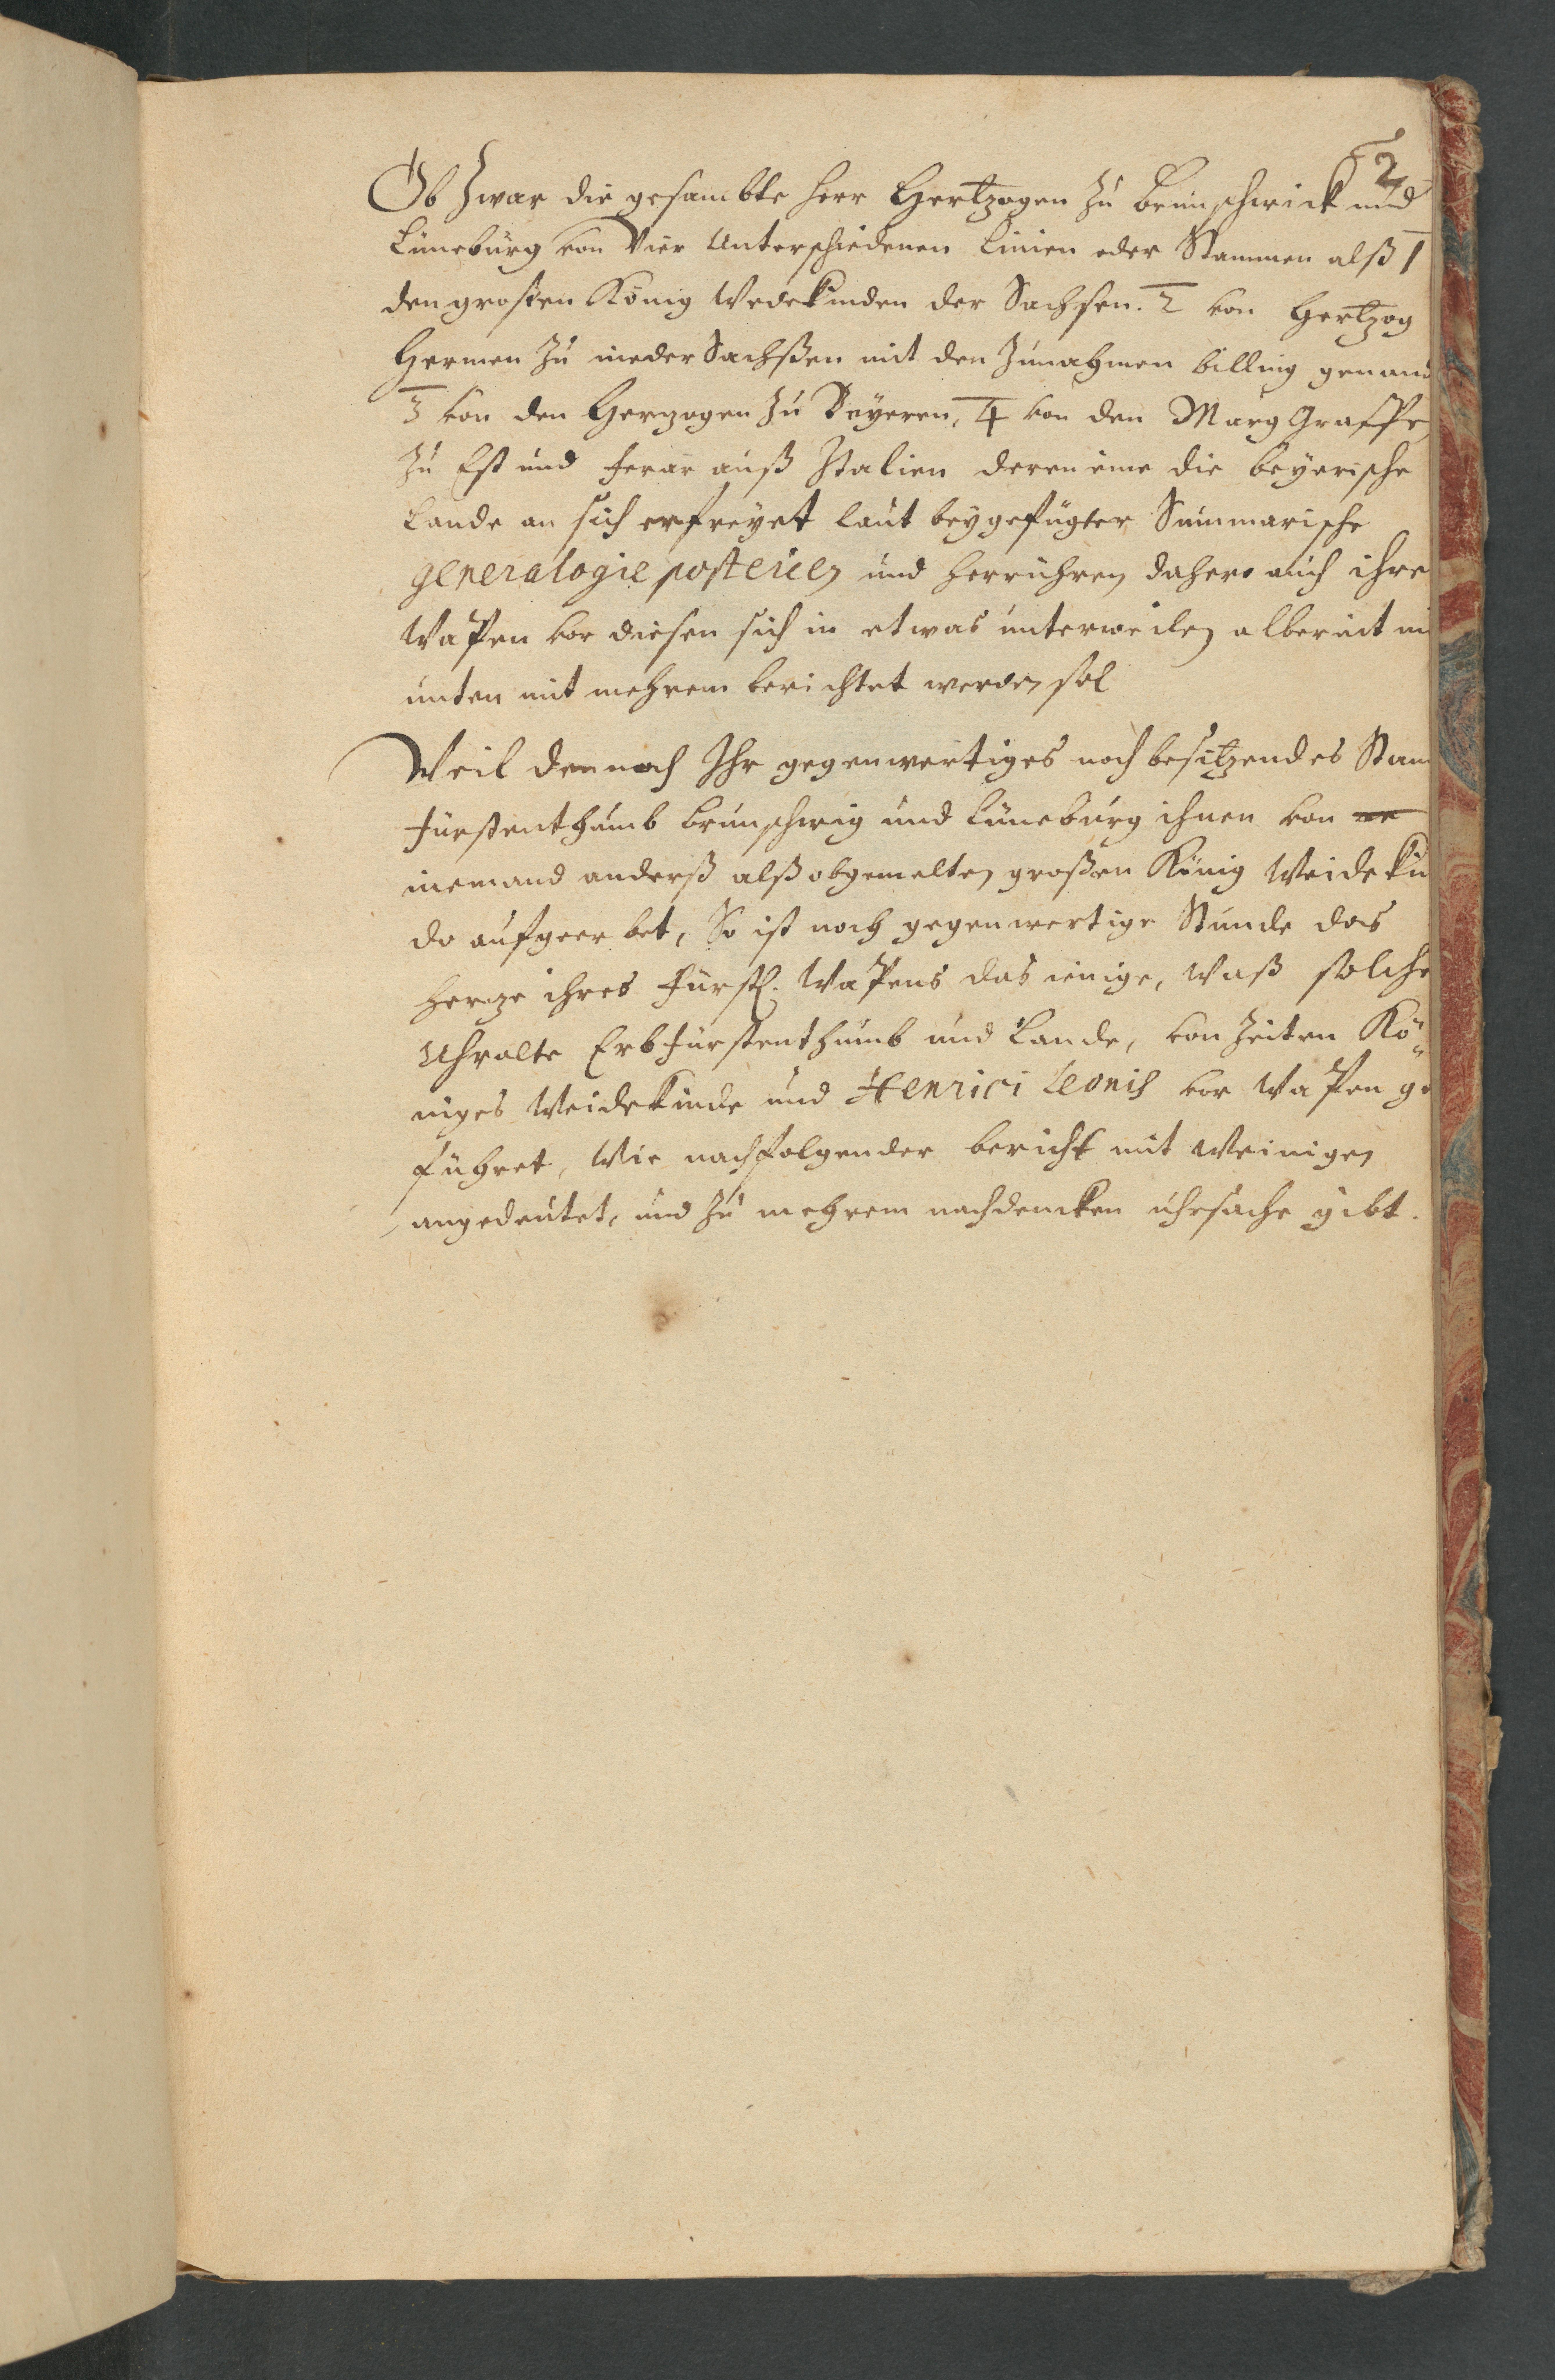 2
Ob Zwar die gesambte Herr Hertzogen zu Brunschwick und
Lüneburg von Vier Unterschiedenen Linien oder Stammen alß 1
den grosten König Wedekinden der Sachsen. 2 von Hertzog
Hermen zu nieder Sachßen mit den Zunahmen billing genand
3 von den Herzogen zu Beyeren, 4 von den Marg Graffen
zu Est und Ferar auß Italien deren eine die beyerische
Lande an sich erfreyet laut beygefügter Summarische
generalogie und herruhren dahero auch ihre
Wapen vor diesen sich in etwas unterweilen albereit
unten mit mehrem berichtet werden sol
Weil dennoch Ihr gegenwertiges noch besitzendes Stam
Fürstenthumb brunschwig und Lüneburg ihnen von ne
niemand anderß alß obgemelten großen König Weidekin
do aufgeerbet, So ist noch gegenwertige Stunde das
Herze ihres Fürstl. Wapens das ienige, Waß solche
Uhralte Erbfürstenthumb und Lande, von Zeiten Kö„
niges Weidekinde und Henrici Leonis vor Wapen ge
führet, Wie nachfolgender bericht mit Weinigen
angedeutet, und zu mehrem nachdencken uhrsache gibt.